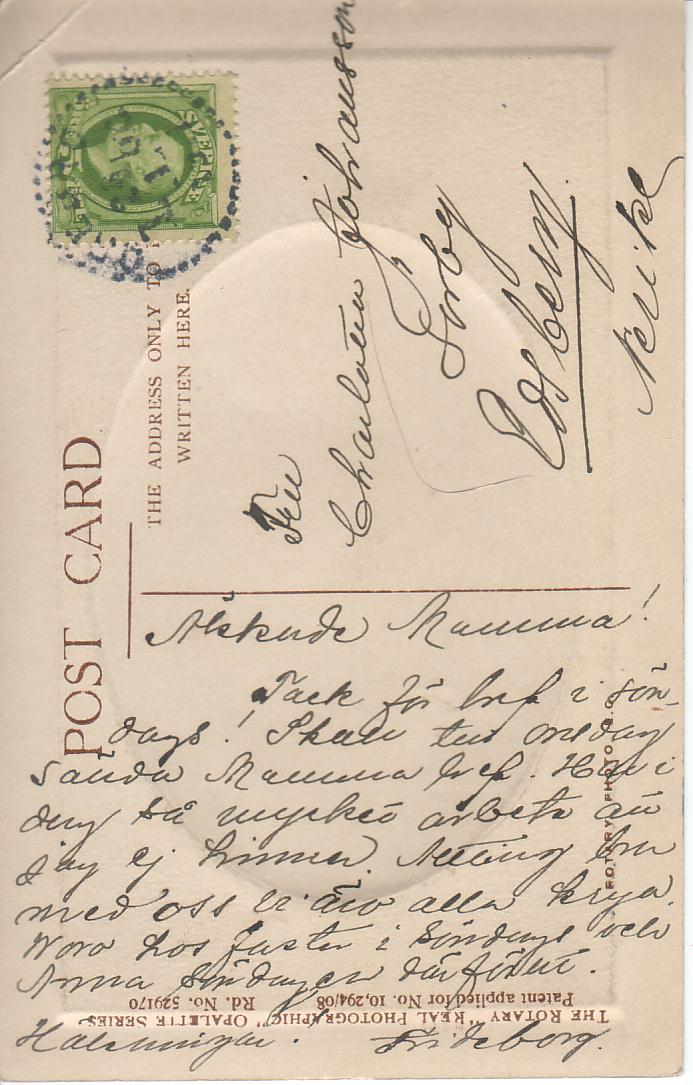 SVERIGE
POST CARD
THE ADDRESS ONLY TO
WRITTEN HERE.
Fru
Charlotta Johansson
Sörby
Edsberg
Nerike
Älskade Mamma!
Tack för bref i sön-
dags! Skall tus onsdag
sända Mamma bref. Har i
dag så mycket arbete att
jag ej hinner. Allting bra
med oss äro alla krya.
Woro hos faster i Söndags och
Anna Söndagen därförut.
Hälsningar. Frideborg.
ROTARY PHOTO, E.C.
THE ROTARY "REAL PHOTOGRAPHIC" OPALETTE SERIES.
Patent applied for No. 10,294/08 Rd. No. 529170